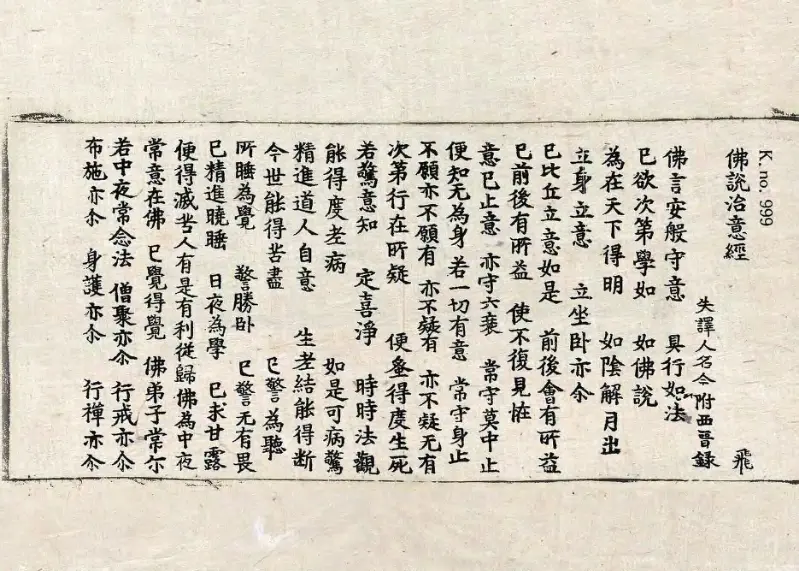 K. no. 999
佛說治意經 飛
失譯人名今附西晉錄
佛言安般守意 具行如法
已欲次第學如 如佛說
為在天下得明 如陰解月出
立身立意 立坐卧亦尒
已比丘立意如是 前後會有所益
已前後有所益 使不復見恠
意已止意 亦守六衰 常守莫中止
便知无為身 若一切有意 常守身止
不願亦不願有 亦不疑有 亦不疑无有
次第行在所疑 便盡得度生死
若驚意知 定喜淨 時時法觀
能得度老病 如是可病驚
精進道人自意 生老結能得斷
今世能得苦盡 已警為聽
所睡為覺 警勝卧 已警无有畏
已精進曉睡 日夜為學 已求甘露
便得滅苦人有是有利從歸佛為中夜
常意在佛 已覺得覺 佛弟子常尒
若中夜常念法 僧聚亦尒 行戒亦尒
布施亦尒 身護亦尒 行禪亦尒